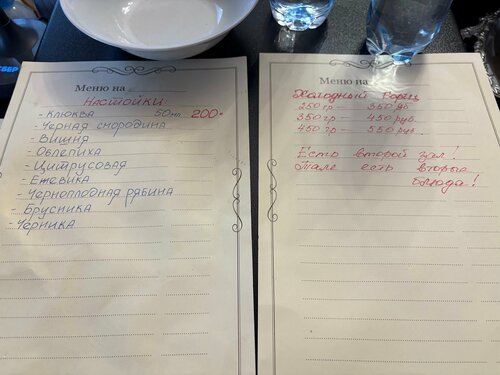 СБЕР
Меню на
НАСТОЙКИ
- Клюква 50мл. 200
- Черная смородина
- Вишня
- Облепиха
- Цитрусовая
- Ежевика
- Черноплодная рябина
- Брусника
- Черника
Меню на
Холодный борец
250 гр — 350 р
350 гр — 450 руб.
450 гр — 550 руб.
Есть второй зал!
Там есть вторые
блюда!